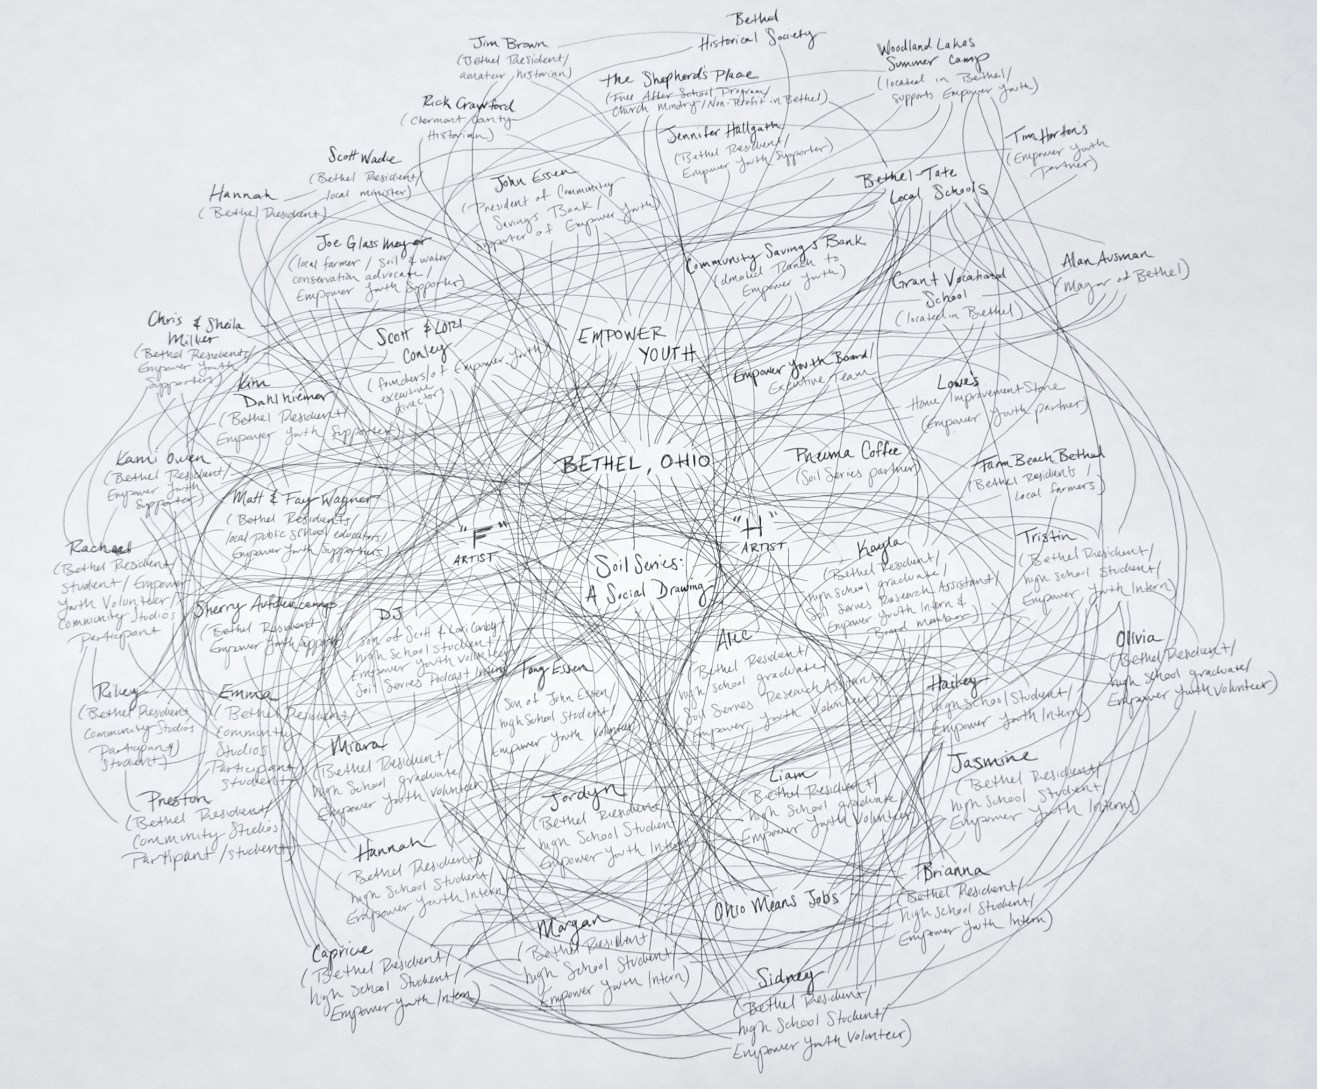 Bethel
Historical Society
Jim Brown
(Bethel Resident/
amateur historian)
Woodland Lakes
Summer Camp
(located in Bethel/
supports Empower Youth)
The Shepherd's Place
(Free After School Program/
Church Ministry/Non-Profit in Bethel)
Rick Crawford
(Clermont County
Historian)
Jennifer Hallgath
(Bethel Resident/
Empower Youth Supporter)
Tim Horton's
(Empower Youth
partner)
Scott Wade
(Bethel Resident/
local minister)
Hannah
(Bethel Resident)
John Essen
(President of Community
Savings Bank/
Supporter of Empower Youth)
Bethel-Tate
Local Schools
Joe Glassmeyer
(local farmer / soil & water
conservation advocate/
Empower Youth Supporter)
Community Savings Bank
(donated Ranch to
Empower Youth)
Grant Vocational
School
(located in Bethel)
Alan Ausman
(Mayor of Bethel)
Chris & Sheila
Miller
(Bethel Residents/
Empower Youth
Supporters)
Scott & Lori
Conley
(founders/of Empower Youth)
executive
directors
EMPOWER
YOUTH
Empower Youth Board/
Executive Team
Kim
Dahlhiemer
(Bethel Resident
Empower Youth Supporter)
Lowe's
Home Improvement Store
(Empower Youth partner)
Kami Owen
(Bethel Resident/
Empower Youth
Supporter)
BETHEL, OHIO
Pneuma Coffee
(Soil Series partner)
Farm Beach Bethel
(Bethel Residents/
local farmers)
Matt & Fay Wagner
(Bethel Residents/
local public school educators/
Empower Youth Supporters)
"F"
ARTIST
"H"
ARTIST
Rachael
(Bethel Resident/
Student/Empower
Youth Volunteer/
Community Studios
Participant
Soil Series:
A Social Drawing
Kayla
(Bethel Resident/
high school graduate/
Soil Series Research Assistant/
Empower Youth Intern &
Board member)
Tristin
(Bethel Resident/
high school student/
Empower Youth Intern)
Sherry
(Bethel Resident
Empower Youth Supporter)
DJ
(son of Scott & Lori Conley/
high school student/
Empower Youth Volunteer
Soil Series Podcast Intern)
Tony Essen
(son of John Essen/
high school student/
Empower Youth Volunteer)
Alec
(Bethel Resident/
high school graduate/
Soil Series Research Assistant
Empower Youth Volunteer)
Olivia
(Bethel Resident/
high school graduate/
Empower Youth Volunteer)
Hailey
(high School Student/
Empower Youth Intern)
Riley
(Bethel Resident
Community Studios
Participant/
Student)
Emma
(Bethel Resident/
Community
Studios
Participant/
student)
Miara
(Bethel Resident/
high school graduate/
Empower Youth Volunteer)
Jasmine
(Bethel Resident/
high School Student
Empower Youth Intern)
Preston
(Bethel Resident/
Community Studios
Participant/student)
Jordyn
(Bethel Resident
high School Student
Empower Youth Intern)
Liam
(Bethel Resident/
high school graduate/
Empower Youth Volunteer)
Hannah
(Bethel Resident/
high School Student/
Empower Youth Intern)
Ohio Means Jobs
Brianna
(Bethel Resident/
high School Student/
Empower Youth Intern)
Caprice
(Bethel Resident/
high School Student/
Empower Youth Intern)
Morgan
(Bethel Resident/
high School Student/
Empower Youth Intern)
Sidney
(Bethel Resident/
high School Student/
Empower Youth Volunteer)